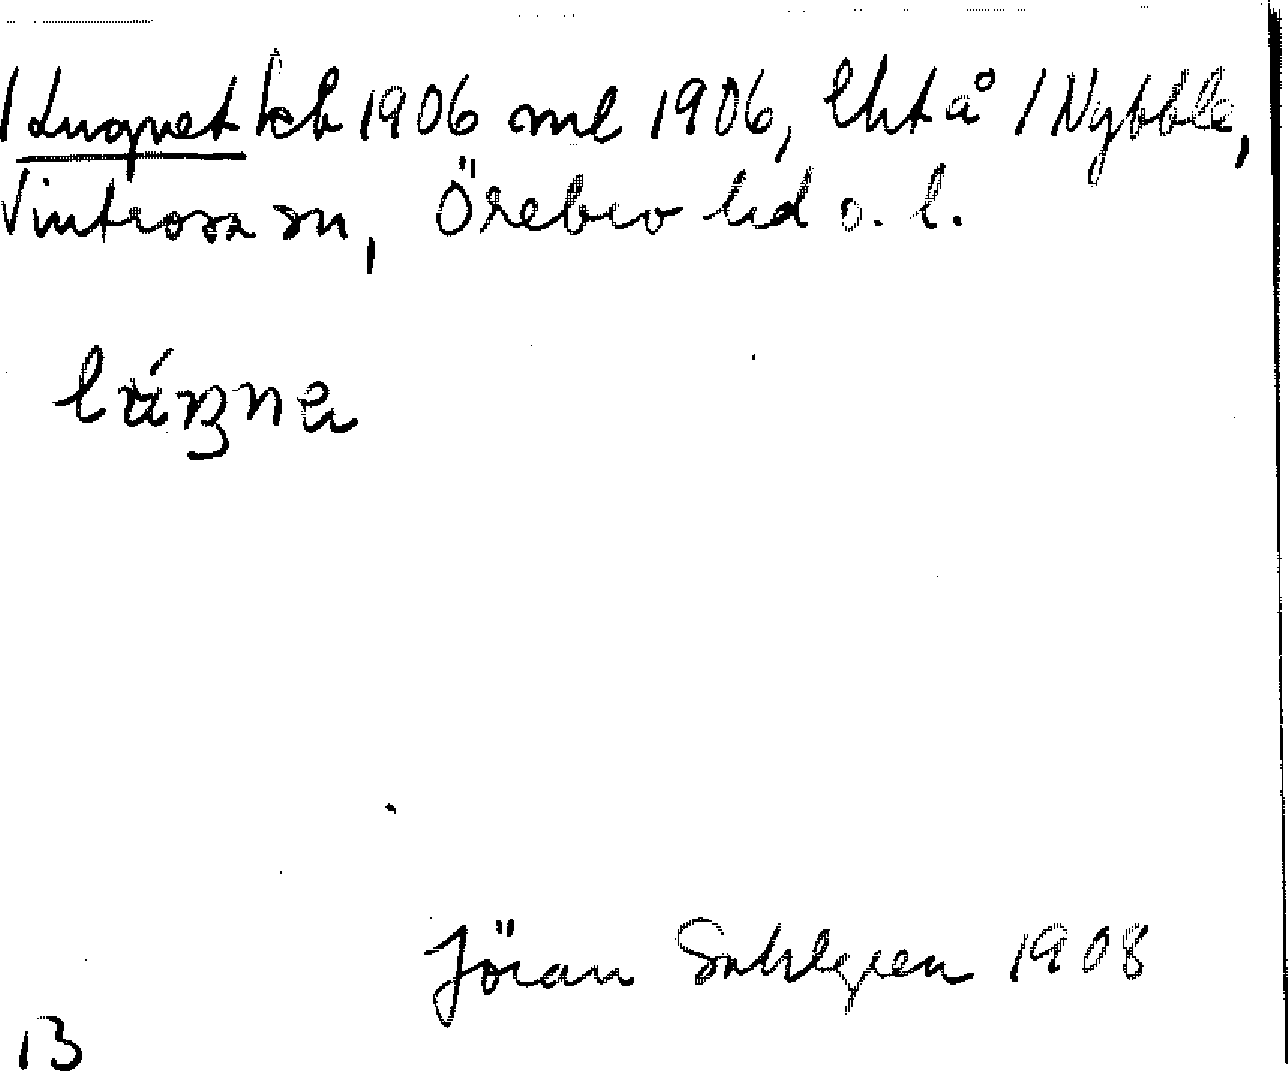 / Lugnet kb 1906 ml 1906, lht å / Nybble,
Vintrosa sn, Örebro hd o. l.
Jöran Sahlgren 1908
13